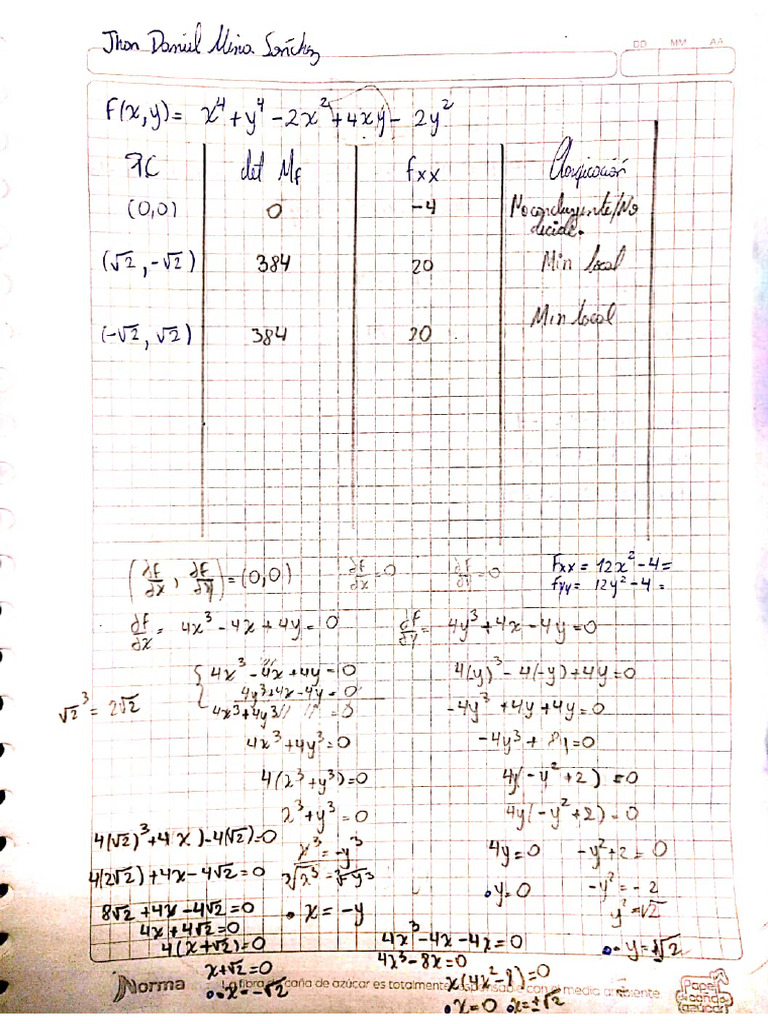 Jhon Daniel Mina Sánchez
DD MM AA
F(x,y) = x⁴ + y⁴ - 2x² + 4xy - 2y²
PC det Mf fxx Clasificación
(0,0) 0 -4 No concluyente/No decide.
(√2, -√2) 384 20 Min local
(-√2, √2) 384 20 Min local
(∂F/∂x, ∂F/∂y) = (0,0) ∂F/∂x = 0 ∂F/∂y = 0
Fxx = 12x² - 4 =
fyy = 12y² - 4 =
∂F/∂x = 4x³ - 4x + 4y = 0 ∂F/∂y = 4y³ + 4x - 4y = 0
{ 4x³ - 4x + 4y = 0
4y³ + 4x - 4y = 0
4x³ + 4y³ // // = 0
4x³ + 4y³ = 0
4(2³ + y³) = 0
2³ + y³ = 0
x³ = -y³
³√x³ = ³√-y³
• x = -y
4(-y)³ - 4(-y) + 4y = 0
-4y³ + 4y + 4y = 0
-4y³ + 8y = 0
4y(-y² + 2) = 0
4y(-y² + 2) = 0
4y = 0 -y² + 2 = 0
• y = 0 -y² = -2
y² = √2
•• y = ±√2
√2³ = 2√2
4(√2)³ + 4(x) - 4(√2) = 0
4(2√2) + 4x - 4√2 = 0
8√2 + 4x - 4√2 = 0
4x + 4√2 = 0
4(x + √2) = 0
x + √2 = 0
•• x = -√2
4x³ - 4x - 4x = 0
4x³ - 8x = 0
x(4x² - 8) = 0
• x = 0 • x = ±√2
Norma
La fibra de caña de azúcar es totalmente responsable con el medio ambiente
Papel de caña de azúcar